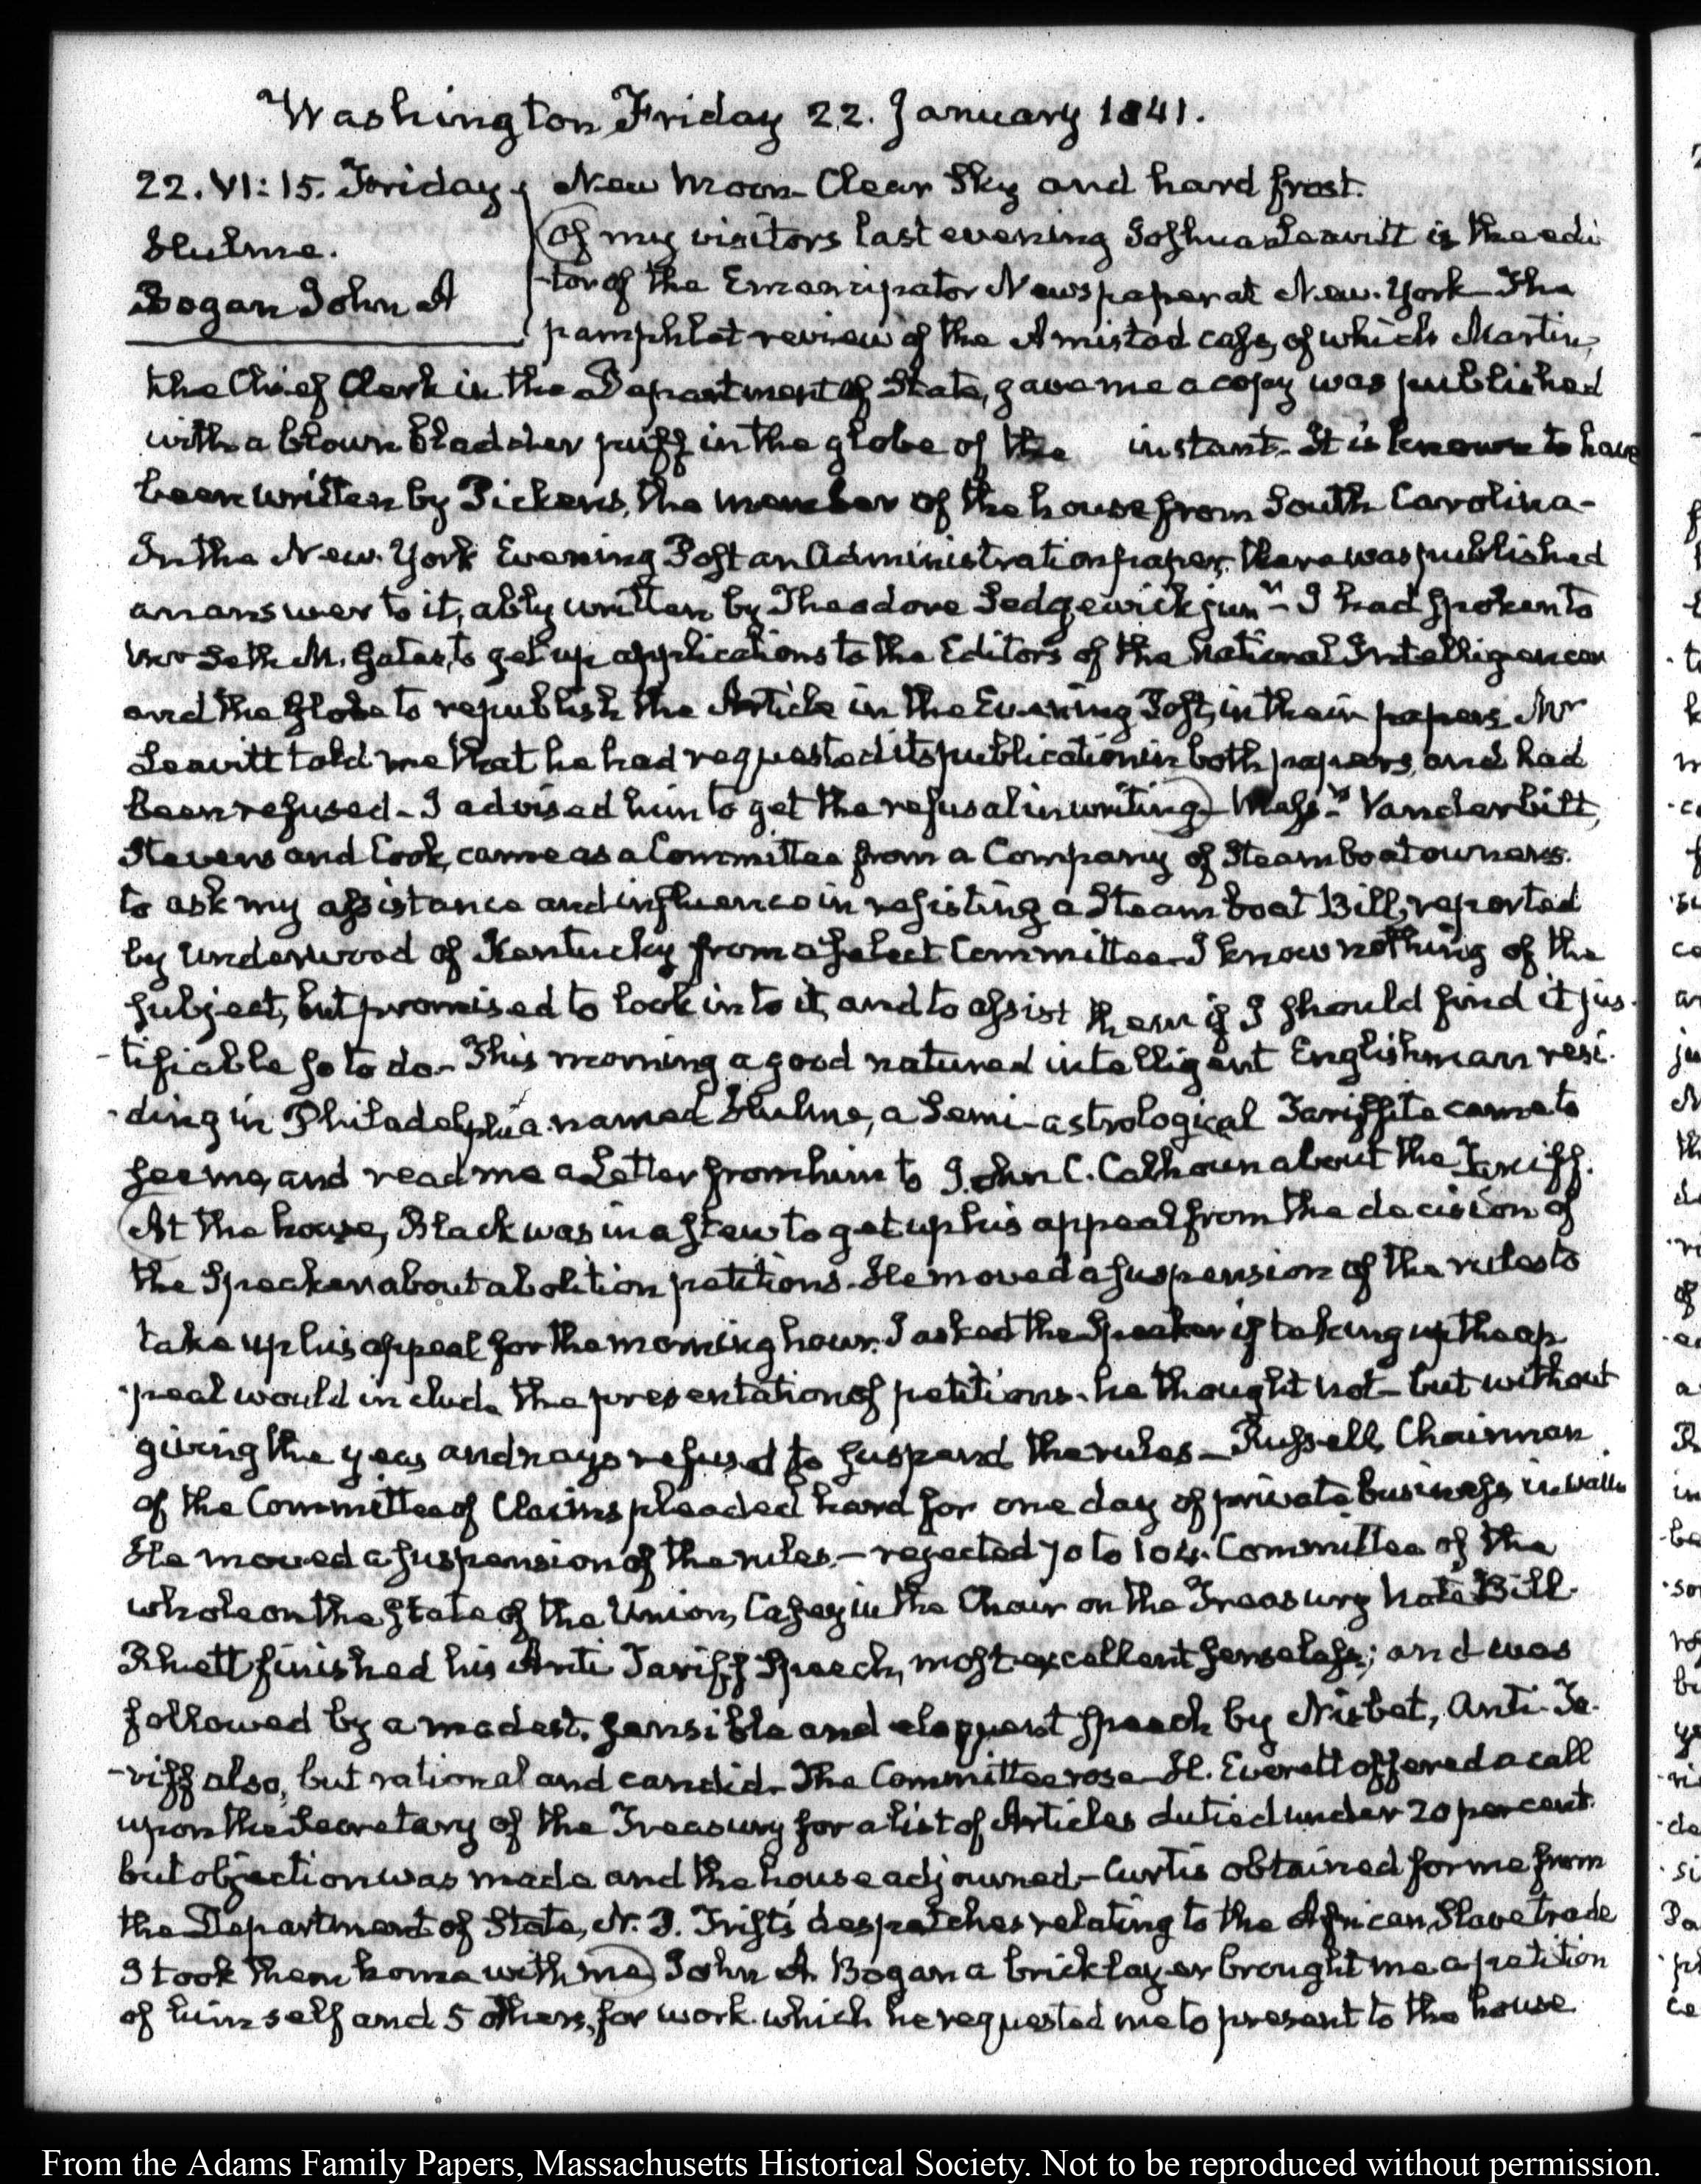 Washington Friday 22. January 1841.
22. VI: 15. Friday
Hulme.
Bogan John A
New Moon - Clear Sky and hard frost.
Of my visitors last evening Joshua Leavitt is the edi
-tor of the Emancipator Newspaper at New-York - The
pamphlet review of the Amistad case, of which Martin,
the Chief Clerk in the Department of State, gave me a copy was published
with a blown bladder puff in the globe of the instant - It is known to have
been written by Pickens, the member of the house from South Carolina -
In the New-York Evening Post an Administration paper, there was published
an answer to it, ably written by Theodore Sedgewick junr - I had spoken to
Mr Seth M. Gates, to get up applications to the Editors of the National Intelligencer
and the Globe to republish the Article in the Evening Post, in their papers Mr
Leavitt told me that he had requested its publication in both papers, and had
been refused - I advised him to get the refusal in writing - Messrs Vanderbilt,
Stevens and Cook, came as a Committee from a Company of Steam boat owners.
to ask my assistance and influence in resisting a Steam boat Bill, reported
by Underwood of Kentucky from a select Committee - I know nothing of the
subject, but promised to look into it, and to assist them if I should find it jus-
-tifiable so to do - This morning a good natured intelligent Englishman resi-
-ding in Philadelphia named Hulme, a Semi-astrological Tariffite came to
see me, and read me a Letter from him to John C. Calhoun about the Tariff.
At the house, Black was in a stew to get up his appeal from the decision of
the Speaker about abolition petitions - He moved a suspension of the rules to
take up his appeal for the morning hour. I asked the Speaker if taking up the ap
-peal would include the presentation of petitions - he thought not - but without
giving the yeas and nays refused to suspend the rules - Russell, Chairman
of the Committee of Claims pleaded hard for one day of private business, in vain
He moved a suspension of the rules - rejected 70 to 104. Committee of the
whole on the state of the Union, Casey in the Chair on the Treasury Note Bill
Rhett finished his Anti Tariff Speech, most excellent senseless; and was
followed by a modest, sensible and eloquent speech by Nisbet, Anti-Ta-
-riff also, but rational and candid - The Committee rose - H. Everett offered a call
upon the Secretary of the Treasury for a list of Articles dutied under 20 per cent
but objection was made and the house adjourned - Curtis obtained for me from
the Department of State, N. P. Trist's despatches relating to the African Slave trade
I took them home with me John A. Bogan a bricklayer brought me a petition
of himself and 5 others, for work which he requested me to present to the house
From the Adams Family Papers, Massachusetts Historical Society. Not to be reproduced without permission.